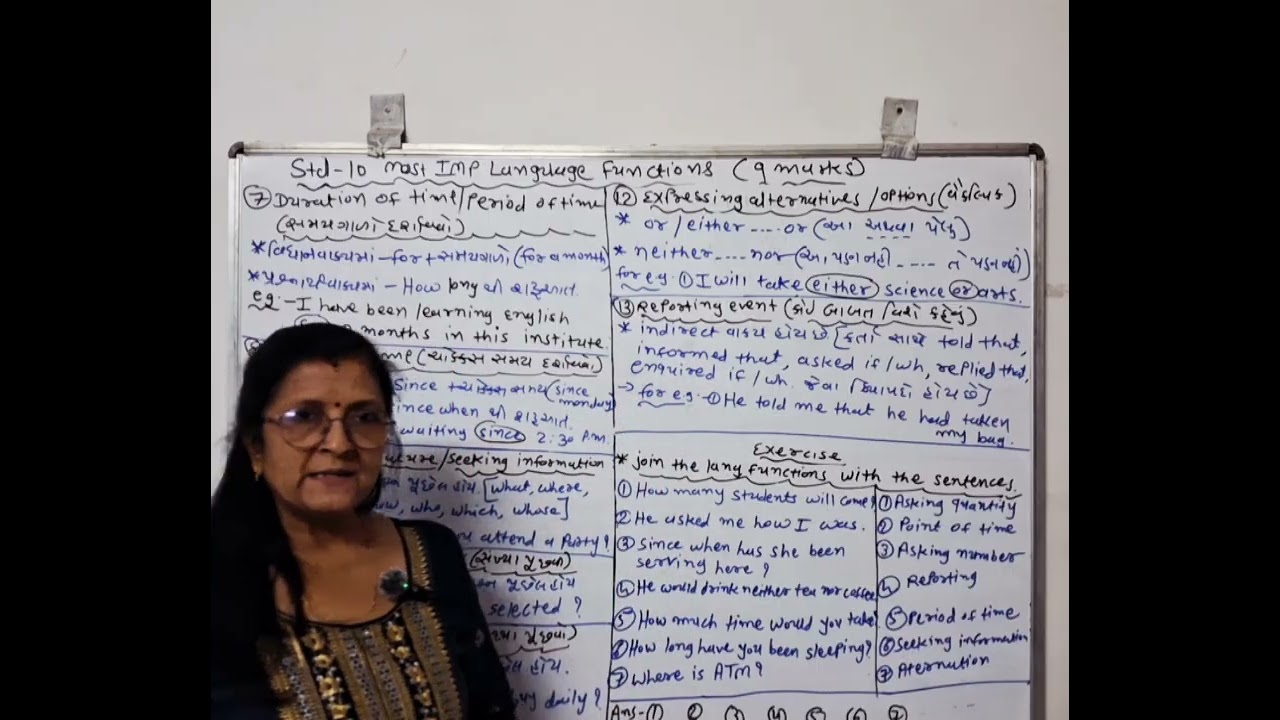 Std-10 Most IMP Language Functions (9 marks)
⑦ Duration of time/Period of time
(સમયગાળો દર્શાવવો)
* વિધાનવાક્યમાં - for + સમયગાળો (for a month)
* પ્રશ્નાર્થવાક્યમાં - How long થી શરૂઆત.
eg:- I have been learning English
months in this institute.
time (ચોક્કસ સમય દર્શાવવો)
Since + ચોક્કસ સમય (since
monday)
since when થી શરૂઆત.
waiting since 2:30 P.M.
/seeking information
પૂછેલ હોય. [what, where,
how, who, which, whose]
attend a Party?
(સંખ્યા પૂછવી)
પૂછેલ હોય
selected?
પૂછવો)
હોય.
buy daily?
⑫ Expressing alternatives/options (વિકલ્પ)
* or / either .... or (આ અથવા પેલું)
* neither .... nor (આ પણ નહી ..... તે પણ નહી)
for eg. ① I will take either science or arts.
⑬ Reporting event (કોઈ બાબત વિશે કહેવું)
* indirect વાક્ય હોય છે. [કર્તા સાથે told that,
informed that, asked if/wh, replied that,
enquired if/wh. જેવા ક્રિયાપદો હોય છે]
→ for eg. -① He told me that he had taken
my bag.
Exercise
* join the lang functions with the sentences.
① How many students will come?
② He asked me how I was.
③ Since when has she been
serving here?
④ He would drink neither tea nor coffee
⑤ How much time would you take
⑥ How long have you been sleeping?
⑦ Where is ATM?
① Asking quantity
② Point of time
③ Asking number
④ Reporting
⑤ Period of time
⑥ Seeking information
⑦ Aternution
Ans-① ② ③ ④ ⑤ ⑥ ⑦